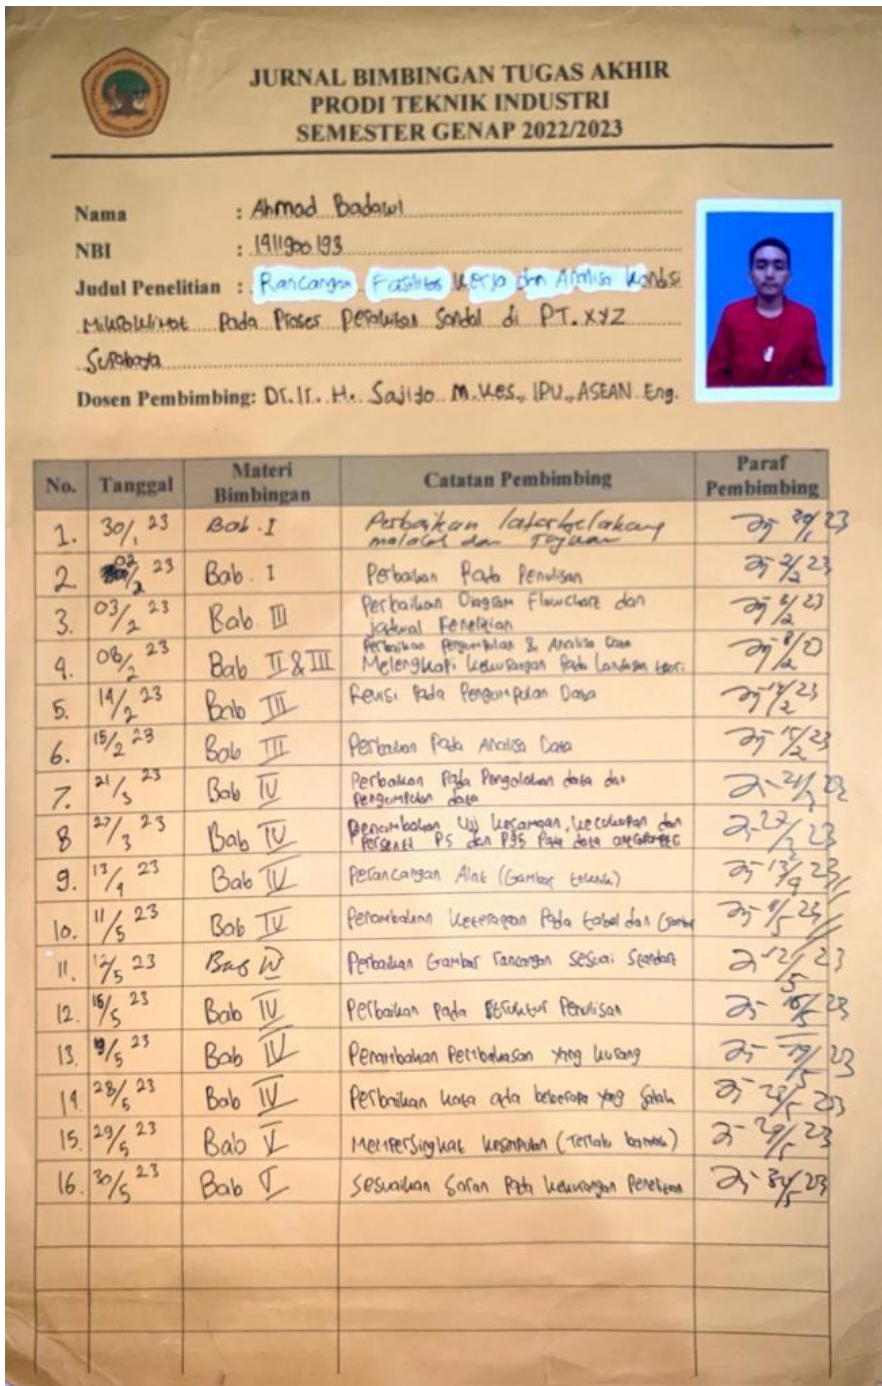 JURNAL BIMBINGAN TUGAS AKHIR
PRODI TEKNIK INDUSTRI
SEMESTER GENAP 2022/2023
Nama : Ahmad Badawi
NBI : 1911900193
Judul Penelitian : Rancangan Fasilitas Kerja dan Analisa Kondisi
Mikroklimat Pada Proses Perakitan Sandal di PT. XYZ
Surabaya
Dosen Pembimbing: Dr. Ir. H. Sajiyo M.Kes., IPU., ASEAN Eng.
No. Tanggal Materi Bimbingan Catatan Pembimbing Paraf Pembimbing
1. 30/1 23 Bab. I Perbaikan latar belakang
masalah dan Tujuan 30/1 23
2 02/2 23 Bab. I Perbaikan Pada Penulisan 2/2 23
3. 03/2 23 Bab III Perbaikan Diagram Flowchart dan
jadwal Penelitian /2 23
4. 08/2 23 Bab II & III Perbaikan Pengumpulan & Analisa Data
Melengkapi kekurangan Pada Landasan teori. 8/2
5. 14/2 23 Bab III Revisi Pada Pengumpulan Data 14/2 23
6. 15/2 23 Bab III Perbaikan Pada Analisa Data 15/2 23
7. 21/3 23 Bab IV Perbaikan Pada Pengolahan data dan
Pengumpulan data 21/3 23
8 27/3 23 Bab IV Penambahan Uji keseragaman, kecukupan dan
Persentil P5 dan P95 Pada data 27/3 23
9. 13/4 23 Bab IV Perancangan Alat (Gambar teknik) 13/4 23
10. 11/5 23 Bab IV Penambahan keterangan Pada tabel dan Gambar 11/5 23
11. 12/5 23 Bab IV Perbaikan Gambar rancangan sesuai Standart 12/5 23
12. 16/5 23 Bab IV Perbaikan pada struktur Penulisan 16/5 23
13. 19/5 23 Bab IV Penambahan Pembahasan yang kurang 19/5 23
14. 28/5 23 Bab IV Perbaikan kata ada beberapa yang Salah 28/5 23
15. 29/5 23 Bab V Mempersingkat kesimpulan (Terlalu banyak) 29/5 23
16. 30/5 23 Bab V Sesuaikan Saran Pada kekurangan Penelitian /5 23